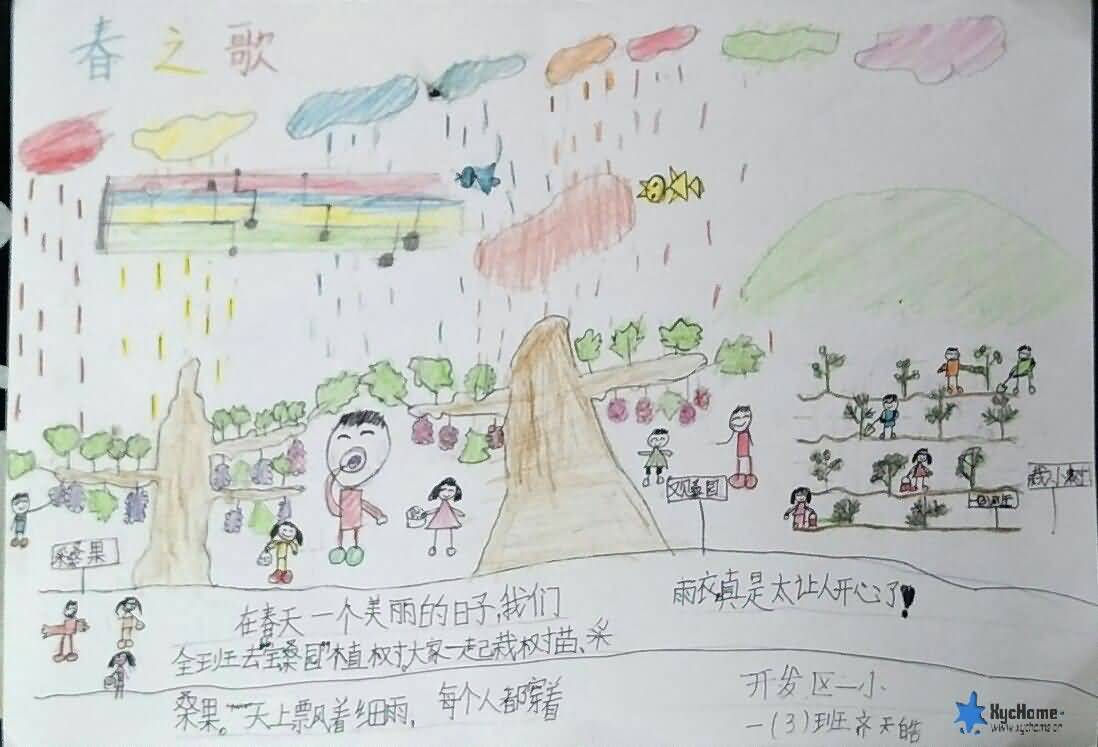 春之歌
采桑果
双桑园
栽小树
在春天一个美丽的日子,我们
全班去"桑园"植树,大家一起栽树苗、采
桑果。天上飘着细雨,每个人都穿着
雨衣真是太让人开心了!
开发区一小
一(3)班齐天皓
XycHome
www.xychome.cn